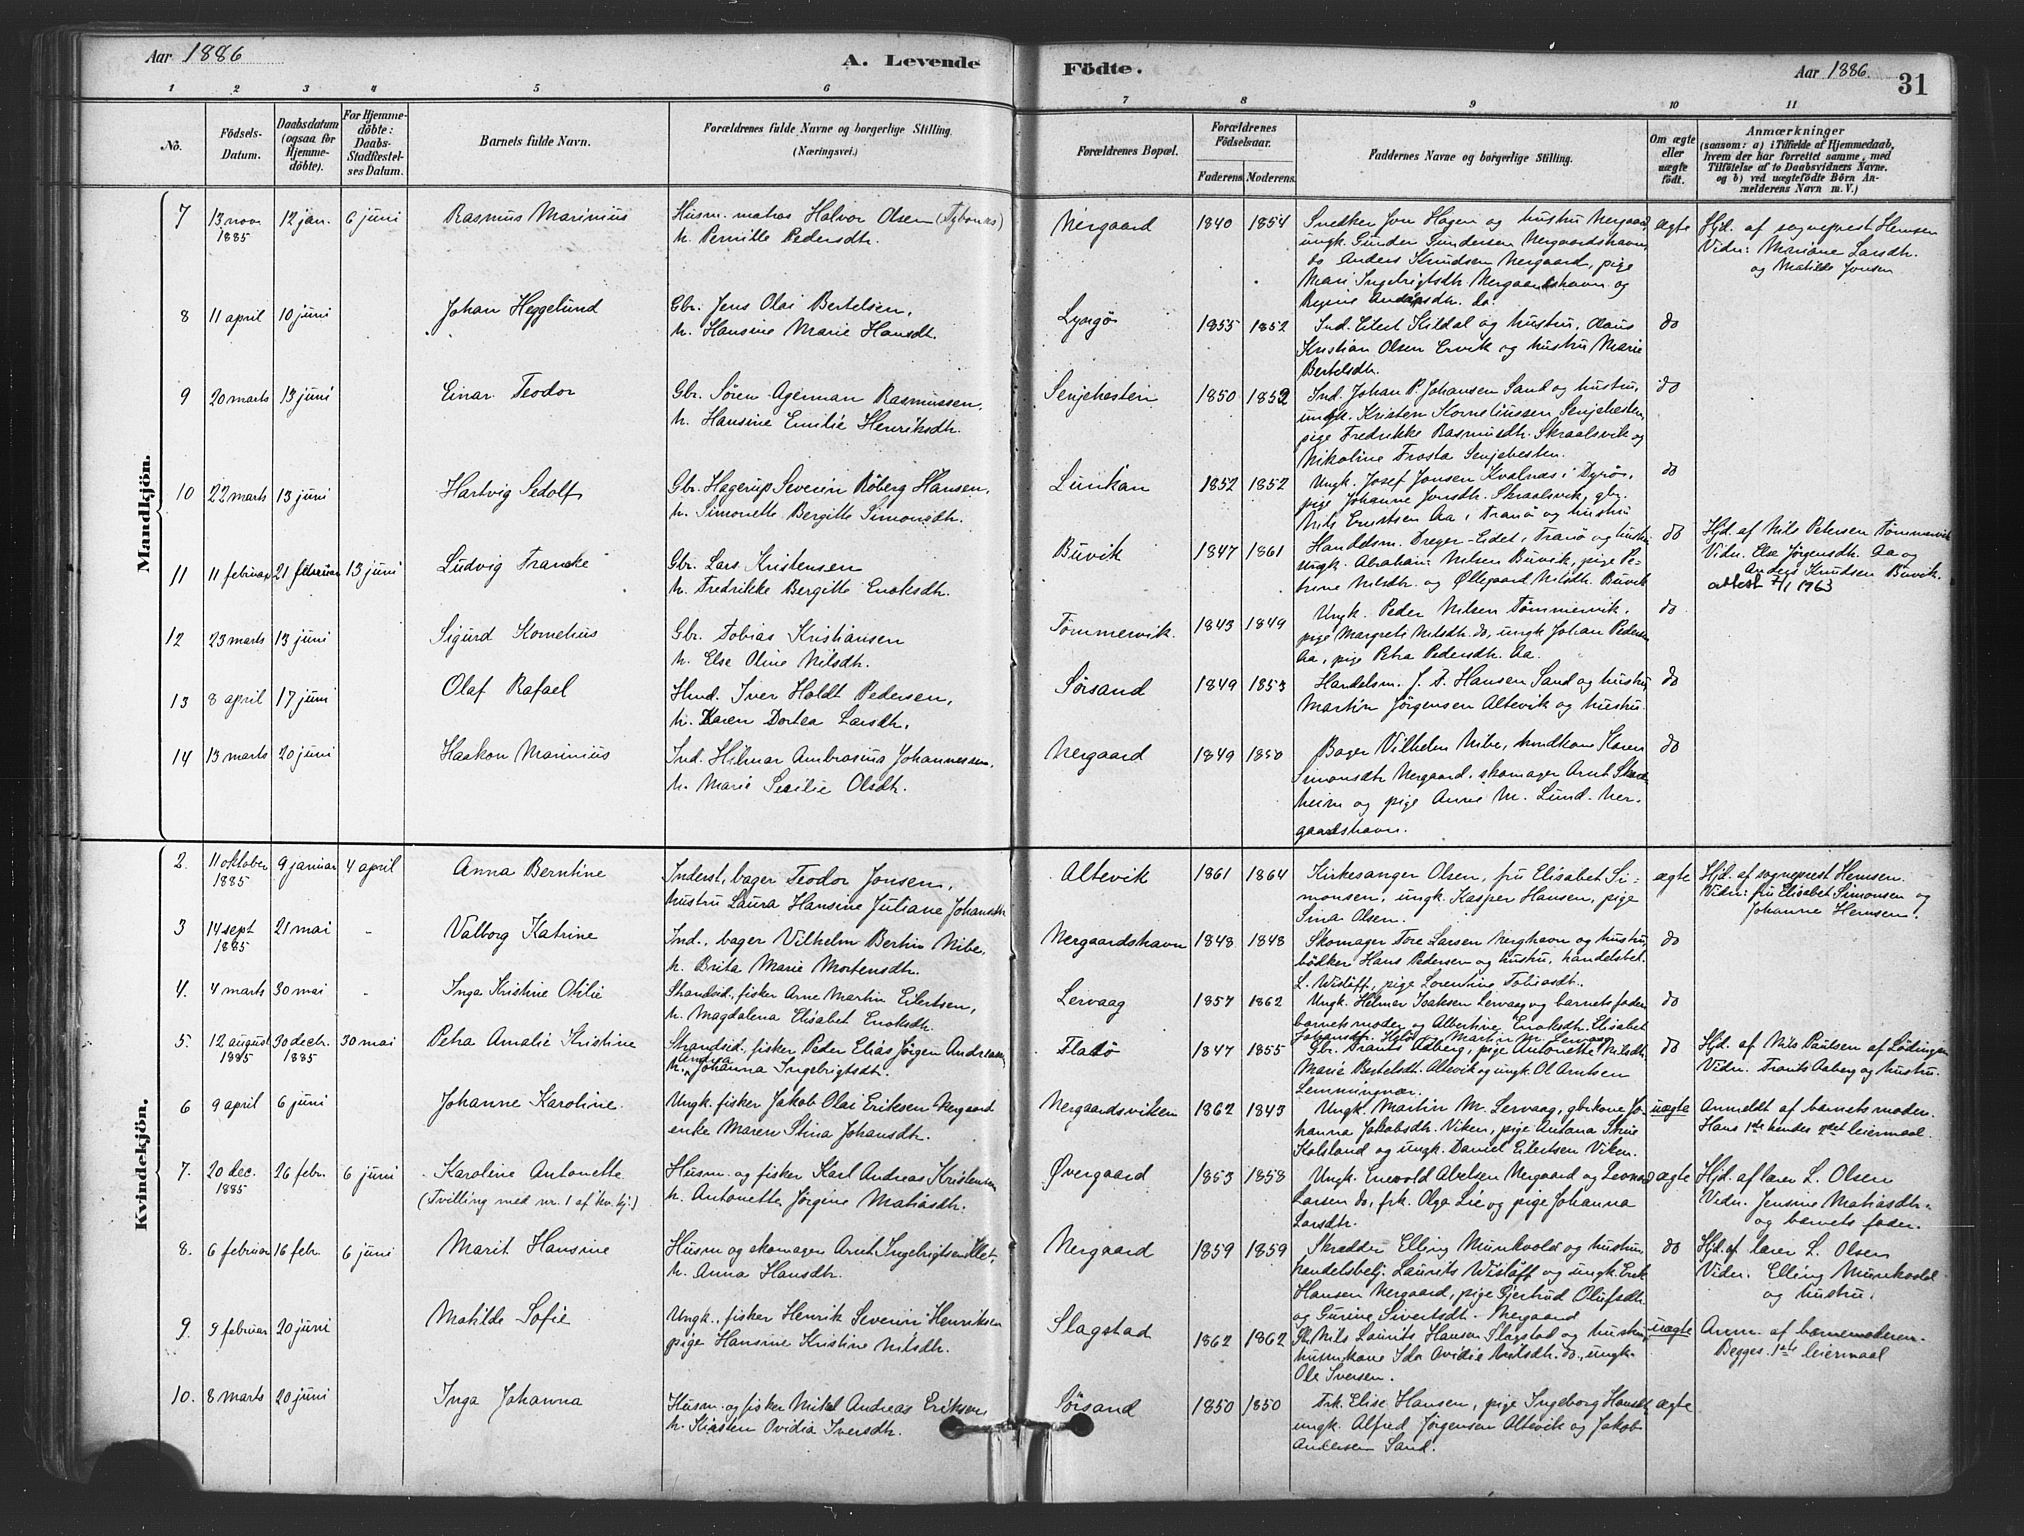 Aar 1886
A. Levende
Födte.
Aar 1886.
31
1 2 3 4 5 6 7 8 9 10 11
No.
Födsels-
Datum.
Daabsdatum
(ogsaa for
Hjemme-
döbte).
For Hjemme-
döbte:
Daabs-
Stadfæstel-
ses Datum.
Barnets fulde Navn.
Forældrenes fulde Navne og borgerlige Stilling.
(Næringsvei.)
Forældrenes Bopæl.
Forældrenes
Födselsaar.
Faderens. Moderens.
Faddernes Navne og borgerlige Stilling.
Om ægte
eller
uægte
födt.
Anmærkninger
(saasom: a) i Tilfælde af Hjemmedaab,
hvem der har forrettet samme, med
Tilföielse af to Daabsvidners Navne.
og b) ved uægtefödte Börn An-
melderens Navn m. V.)
Mandkjön.
7 13 nov 1885 12 jan. 6 juni Rasmus Marinius
Husm. matros Halvor Olsen
h. Pernille Pedersdtr.
Nergaard 1840 1854
Snedker Jon Hagen og hustru Nergaard,
ungk. Gunder Gundersen Nergaardshavn,
do Anders Knudsen Nergaard, pige
Mari Ingebrigtsdtr. Nergaardshavn og
Regine Andersdtr. do.
ægte
Hjd. af sogneprest Hemsen
Vidn: Mariane Larsdtr.
og Matilde Jonsen
8 11 april 10 juni Johan Heggelund
Gbr. Jens Olai Bertelsen,
h. Hansine Marie Hansdtr.
Lyngö 1855 1852
Ind. Eilert Kildal og hustru, Olaus
Kristian Olsen Ervik og hustru Marie
Bertelsdtr.
do
9 20 marts 13 juni Einar Teodor
Gbr. Sören Agerman Rasmussen,
h. Hansine Emilie Henriksdtr.
Senjehesten 1850 1852
Ind. Johan P. Johansen Sand og hustru,
ungk. Kristen Korneliussen Senjehesten,
pige Fredrikke Rasmusdtr. Skraalsvik og
Nikoline Frosta Senjehesten.
do
10 22 marts 13 juni Hartvig Sedolf
Gbr. Hagerup Severin Röberg Hansen,
h. Simonette Bergitte Simonsdtr.
Lunkan 1852 1852
Ungk. Josef Jonsen Kvalnæs i Dyrö,
pige Johanne Jonsdtr. Skraalsvik, gbr.
Nils Enertsen Aa i Tranö og hustru
do
11 11 februar 21 februar 13 juni Ludvig Francke
Gbr. Lars Kristensen
h. Fredrikke Bergitte Enoksdtr.
Buvik 1847 1861
Handelsm. Dreyer Eidet i Tranö og hustru
ungk. Abraham Nilsen Buvik, pige Pe-
trine Nilsdtr. og Øllegaard Nilsdtr. Buvik
do
Hjd. af Nils Petersen Tömmervik
Vidn. Else Jörgensdtr. Aa og
Anders Knudsen Buvik.
attest 7/1 1963
12 23 marts 13 juni Sigurd Kornelius
Gbr. Tobias Kristiansen
h. Else Oline Nilsdtr.
Tömmervik. 1843 1849
Ungk. Peder Nilsen Tömmervik,
pige Margrete Nilsdtr. do, ungk Johan Pedersen
Aa, pige Petra Pedersdtr. Aa.
do
13 8 april 17 juni Olaf Rafael
Hmd. Iver Holdt Pedersen,
h. Karen Dortea Larsdtr.
Sörsand 1849 1853
Handelsm. J. A. Hansen Sand og hustru
Martin Jörgensen Altevik og hustru.
do
14 13 marts 20 juni Haakon Marinius
Ind. Hilmar Ambrosius Johannessen,
h. Marie Sesilie Olsdtr.
Nergaard 1849 1850
Bager Vilhelm Nibe, husmkone Karen
Simonsdtr Nergaard, skomager Arnt
heim og pige Anne M. Lund. Ner-
gaardshavn.
do
Kvindekjön.
2. 11 oktober 1885 9 januar 4 april Anna Berntine
Inderst, bager Teodor Jonsen,
hustru Laura Hansine Juliane Johansdtr
Altevik 1861 1864
Kirkesanger Olsen, fru Elisabet Si-
monsen, ungk. Kasper Hansen, pige
Sina Olsen.
ægte
Hjd. af sogneprest Hemsen.
Vidn: fru Elisabet Simonsen og
Johanne Hemsen.
3 14 sept 1885 21 mai - Valborg Katrine
Ind., bager Vilhelm Bertin Nibe,
h. Brita Marie Mortensdtr.
Nergaardshavn 1848 1848
Skomager Tore Larsen Nerghavn og hustru,
bödker Hans Pedersen og hustru, handelsbet.
L. Wislöff, pige Lorentine Tobiasdtr.
do
4. 4 marts 30 mai - Inga Kristine Otilie
Strandsid., fisker Arne Martin Eilertsen,
h. Magdalena Elisabet Enoksdtr.
Lervaag 1857 1862
Ungk. Helmer Isaksen Lervaag og barnets fader
barnets moder og Albertine Enoksdtr. Elisabet
Johansdtr. Martin M. Lervaag
do
5. 12 august 1885 30 decbr. 1885 30 mai Petra Amalie Kristine
Strandsid., fisker Peder Elias Jörgen Andreassen
h. Johanna Ingebrigtsdtr.
Flatö 1847 1855
Gbr. Frants Aaberg, pige Antonette Nilsdtr.
Marie Bertelsdtr. Altevik og ungk. Ol Arntsen
Lemmingvær.
do
Hjd. af Nils Paulsen af Lödingen
Vidn. Frants Aaberg og hustru.
6 9 april 6 juni Johanne Karoline.
Ungk. fisker Jakob Olai Eriksen Nergaard
enke Maren Stina Johansdtr.
Nergaardsviken 1862 1843
Ungk. Martin M. Lervaag, gbrkone Jo-
hanna Jakobsdtr. Viken, pige Antona Stine
Kolsland og ungk. Daniel Eilertsen Viken.
uægte
Anmeldt af barnets moder.
Hans 1ste hendes 2det leiermaal.
7. 20 dec. 1885 26 febr. 6 juni Karoline Antonette
(Tvilling med nr. 1 af kv. kj.)
Husm. og fisker Karl Andreas Kristensen
h. Antonette Jörgine Matiasdtr.
Øvergaard 1853 1858
Ungk. Enevold Abelsen Nergaard og Leonard
Larsen do, frk. Olga Lie og pige Johanna
Larsdtr.
ægte
Hjd. af lærer L. Olsen
Vidn. Jensine Matiasdtr.
og barnets fader.
8. 6 februar 16 febr. 6 juni Marit Hansine
Husm og skomager Arnt Ingebrigtsen
h. Anna Hansdtr.
Nergaard 1859 1859
Skrædder Elling Munkvold og hustru
handelsbetj. Laurits Wislöff og ungk. Erik
Hansen Nergaard, pige Gjertrud Olufsdtr
og Gurine Sivertsdtr. Nergaard
do
Hjd. af lærer L. Olsen
Vidn. Elling Munkvold
og hustru.
9 9 februar 20 juni Matilde Sofie
Ungk., fisker Henrik Severin Henriksen
pige Hansine Kristine Nilsdtr.
Slagstad 1862 1862
Gbr. Nils Laurits Hansen Slagstad og hustru,
husmkone Ida Ovidie Nilsdtr. do., ungk.
Ole Iversen.
uægte
Anm. af barnemoderen.
Begges 1ste leiermaal
10. 8 marts 20 juni Inga Johanna
Husm. og fisker Mikal Andreas Eriksen
h. Kirsten Ovidia Iversdtr.
Sörsand 1850 1850
Frk. Elise Hansen, pige Ingeborg Hansdtr.
ungk. Alfred Jörgensen Altevik og Jakob
Andersen Sand.
ægte